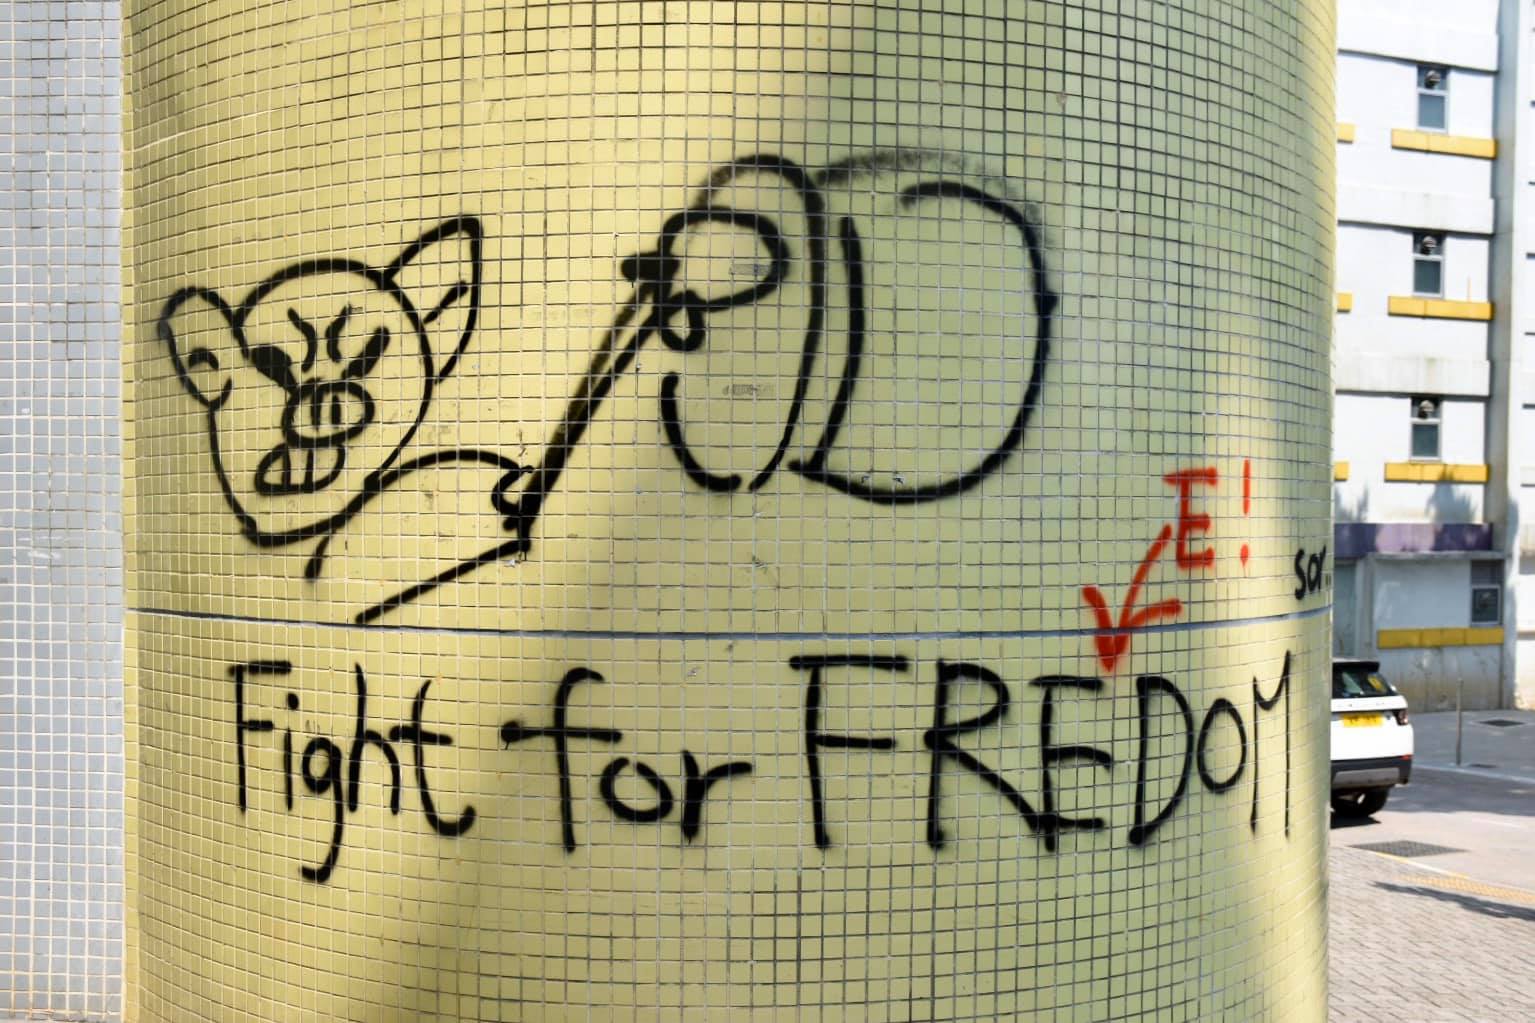 E!
sor..
Fight for FREDOM